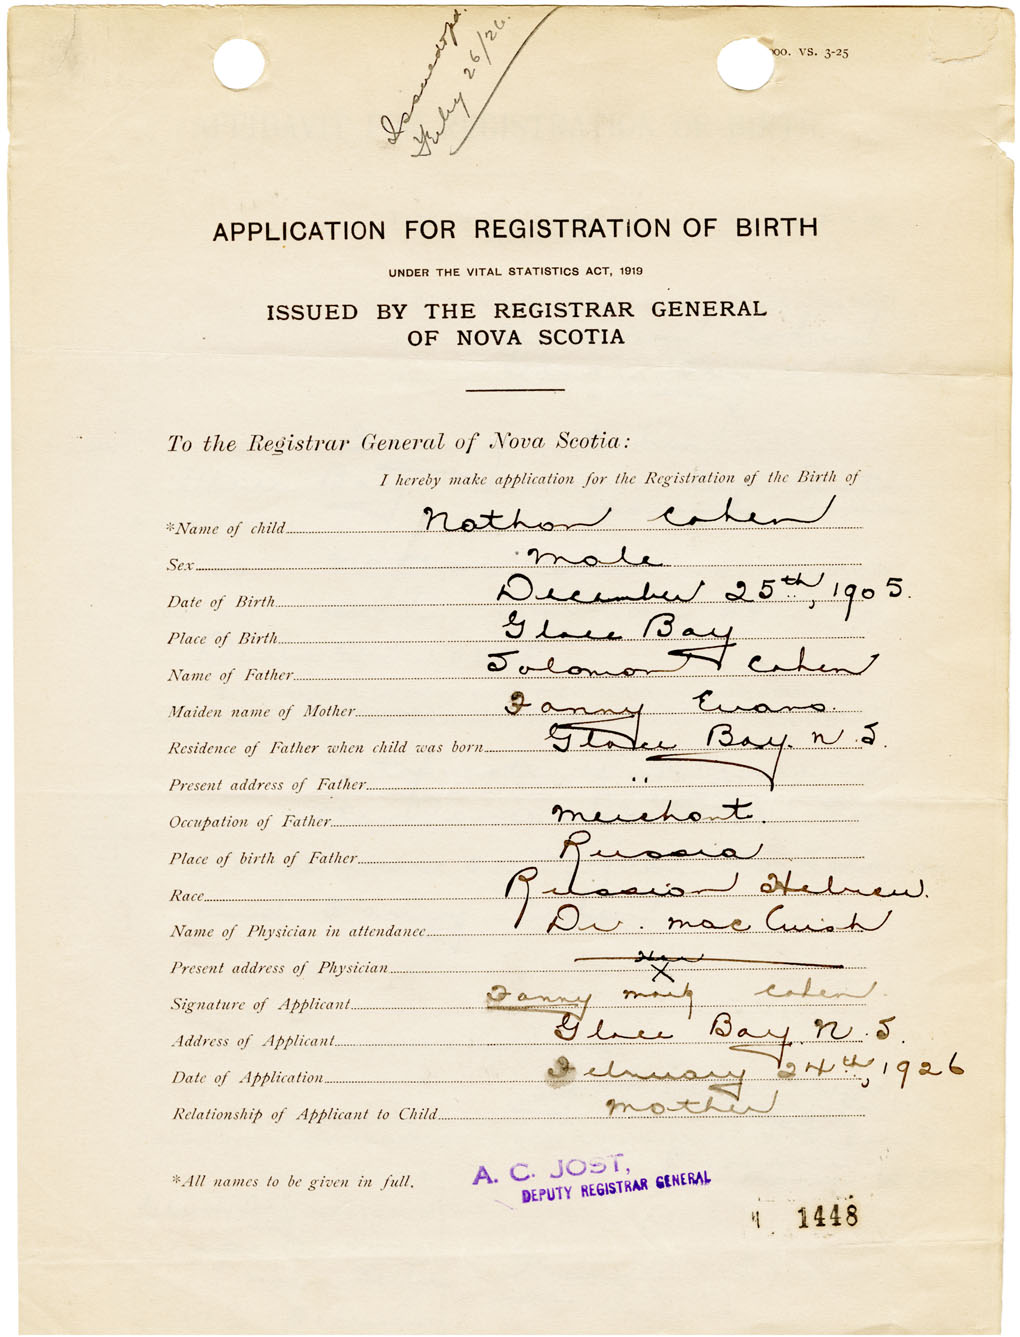 Issued pd.
Feby 26/26.
000. VS. 3-25
APPLICATION FOR REGISTRATION OF BIRTH
UNDER THE VITAL STATISTICS ACT, 1919
ISSUED BY THE REGISTRAR GENERAL
OF NOVA SCOTIA
To the Registrar General of Nova Scotia:
I hereby make application for the Registration of the Birth of
*Name of child Nathan Cohen
Sex Male
Date of Birth December 25th, 1905.
Place of Birth Glace Bay
Name of Father Solomon Cohen
Maiden name of Mother Fanny Evans.
Residence of Father when child was born Glace Bay. N. S.
Present address of Father "
Occupation of Father Merchant.
Place of birth of Father Russia
Race Russian Hebrew.
Name of Physician in attendance Dr. MacCuish
Present address of Physician Her
Signature of Applicant Fanny X mark Cohen.
Address of Applicant Glace Bay. N. S.
Date of Application February 24th, 1926
Relationship of Applicant to Child Mother
*All names to be given in full.
A. C. JOST,
DEPUTY REGISTRAR GENERAL
1448